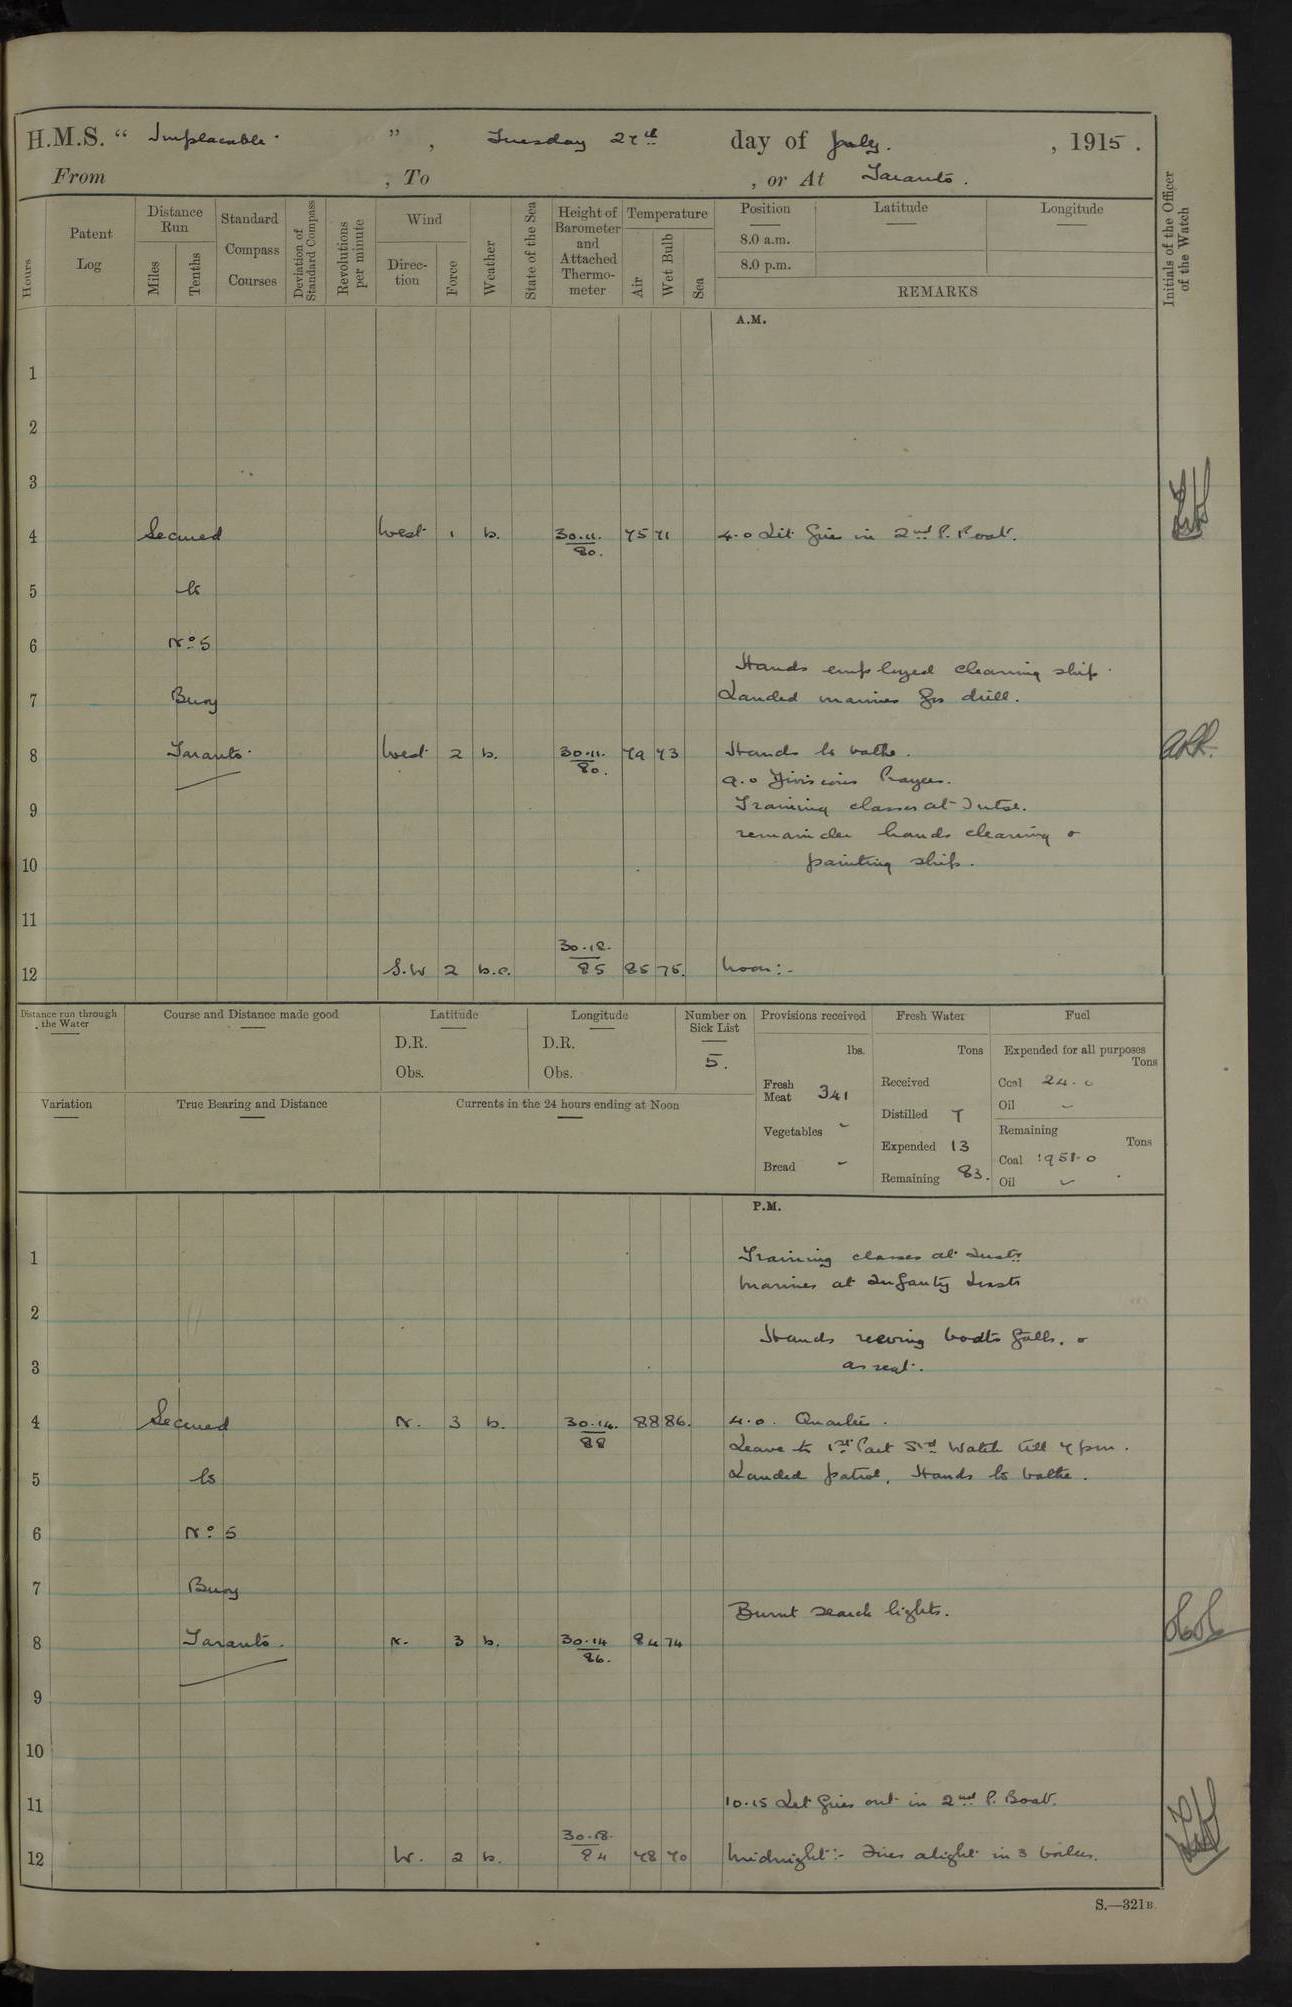 H.M.S. “ Implacable ” , Tuesday 27th day of July. , 1915.
From , To , or At Taranto.
Hours
Patent Log
Distance Run
Miles
Tenths
Standard Compass Courses
Deviation of Standard Compass
Revolutions per minute
Wind
Direc-tion
Force
Weather
State of the Sea
Height of Barometer and Attached Thermo-meter
Temperature
Air
Wet Bulb
Sea
Position
8.0 a.m.
8.0 p.m.
Latitude
Longitude
REMARKS
Initials of the Officer of the Watch
A.M.
1
2
3
4 Secured West 1 b. 30.11. 80. 75 71 4.0 Lit fires in 2nd P. Boat.
5 to
6 No 5
Hands employed cleaning ship.
7 Buoy Landed marines for drill.
8 Taranto. West 2 b. 30.11. 80. 79 73 Hands to bathe.
9.0 Divisions Prayers.
9 Training classes at Instn.
remainder hands cleaning &
10 painting ship.
11
12 S.W 2 b.c. 30.12. 85 85 75. Noon:-
Distance run through the Water
Course and Distance made good
Latitude
D.R.
Obs.
Longitude
D.R.
Obs.
Number on Sick List
5.
Provisions received
lbs.
Fresh Meat 341
Vegetables -
Bread -
Fresh Water
Tons
Received
Distilled 7
Expended 13
Remaining 83.
Fuel
Expended for all purposes
Tons
Coal 24.0
Oil -
Remaining
Tons
Coal 1951.0
Oil -
Variation
True Bearing and Distance
Currents in the 24 hours ending at Noon
P.M.
1 Training classes at Instn
Marines at Infantry Instn
2
Hands reeving boats falls. &
3 as reqt.
4 Secured N. 3 b. 30.14. 88 88 86. 4.0. Quarters.
Leave to 1st Part Stbd Watch till 7 pm.
5 to Landed patrol, Hands to bathe.
6 No 5
7 Buoy
Burnt search lights.
8 Taranto. N. 3 b. 30.14 86. 84 74
9
10
11 10.15 Let fires out in 2nd P. Boat.
12 W. 2 b. 30.18. 84 78 70 Midnight:- Fires alight in 3 boilers.
S.—321B.